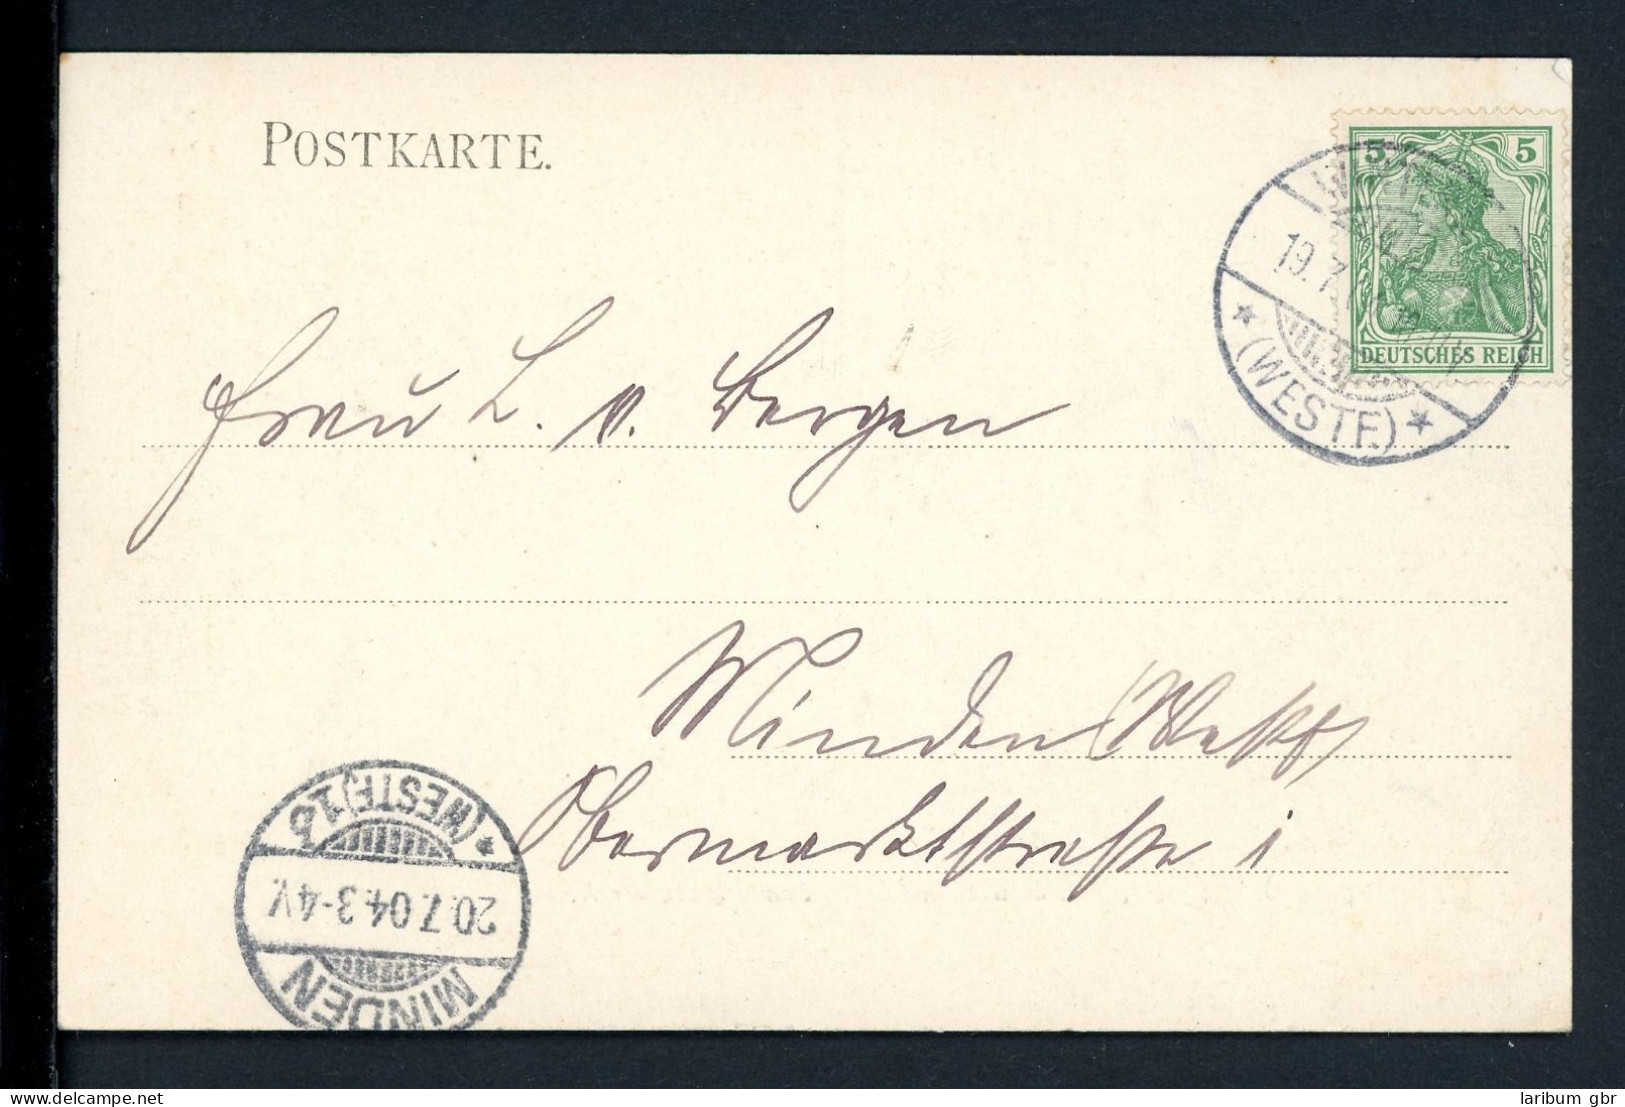 POSTKARTE.
5 5
DEUTSCHES REICH
19.7.
(WESTF.)
Frau L. v. Bergen
Minden (Westf)
Obermarktstrasse 1
MINDEN
20.7.04.3-4V.
(WESTF.) 1
laribum gbr